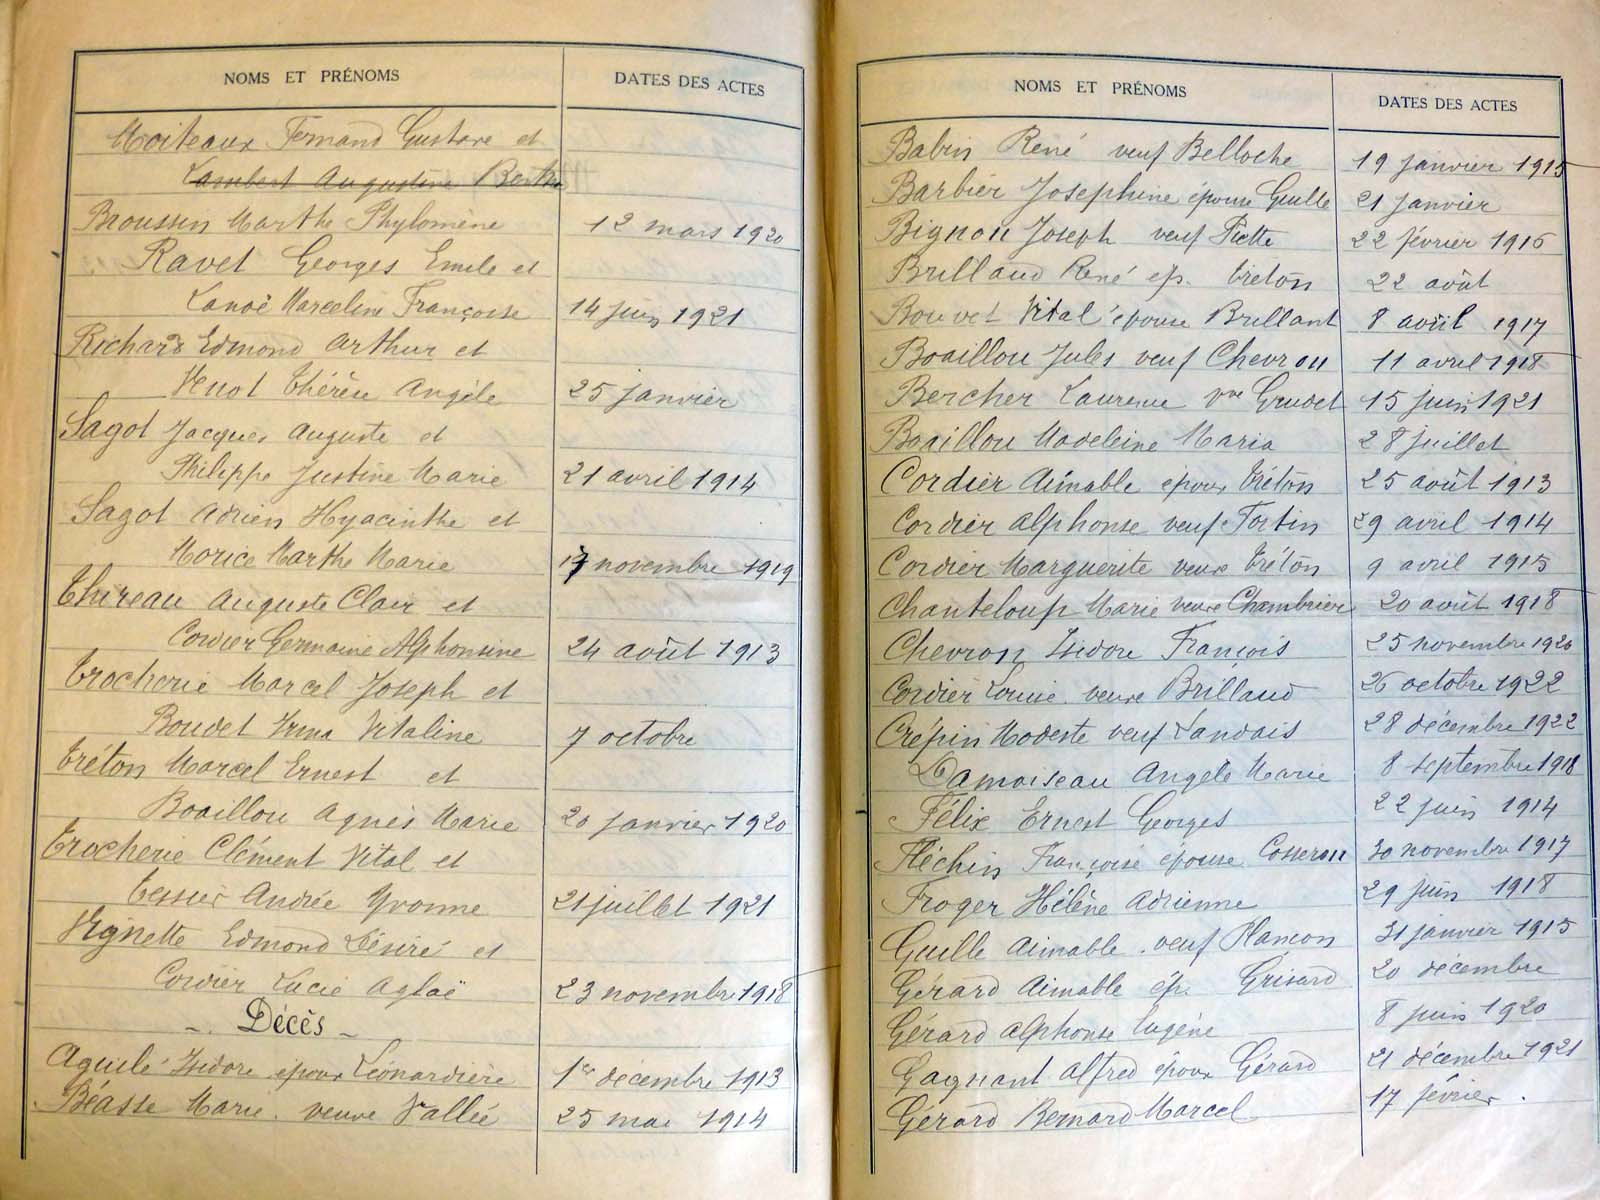 NOMS ET PRÉNOMS DATES DES ACTES
Moiteaux Fernand Gustave et
Lambert Augustine Berthe
Broussin Marthe Phylomène 12 mars 1920
Ravet Georges Emile et
Lanoë Marceline Françoise 14 juin 1921
Richard Edmond Arthur et
Venot Thérèse Angèle 25 janvier
Sagot Jacques Auguste et
Philippe Justine Marie 21 avril 1914
Sagot Adrien Hyacinthe et
Morice Marthe Marie 17 novembre 1919
Thireau Auguste Clair et
Cordier Germaine Alphonsine 24 août 1913
Trocherie Marcel Joseph et
Boudet Irma Vitaline 7 octobre
Tréton Marcel Ernest et
Boaillou Agnès Marie 20 janvier 1920
Trocherie Clément Vital et
Tessier Andrée Yvonne 21 juillet 1921
Vignette Edmond Désiré et
Cordier Lucie Aglaë 23 novembre 1918
- Décès -
Aguilé Isidore époux Léonardière 1er décembre 1913
Béasse Marie veuve Vallée 25 mai 1914
NOMS ET PRÉNOMS DATES DES ACTES
Babin René veuf Belloche 19 janvier 1915
Barbier Josephine épouse Guille 21 janvier
Bignon Joseph veuf Piette 22 février 1916
Brilland René ép. Tréton 22 août
Bouvet Vital épouse Brillant 8 août 1917
Boaillou Jules veuf Chevron 11 avril 1918
Bercher Laurence vve Grudet 15 juin 1921
Boaillou Madeleine Maria 28 juillet
Cordier Aimable époux Tréton 25 août 1913
Cordier Alphonse veuf Fortin 29 avril 1914
Cordier Marguerite veuve Tréton 9 avril 1915
Chanteloup Marie veuve Chambrier 20 août 1918
Chevron Isidore François 25 novembre 1920
Cordier Louise veuve Brilland 26 octobre 1922
Crépin Modeste veuf Landais 28 décembre 1922
Damoiseau Angèle Marie 8 septembre 1918
Félix Ernest Georges 22 juin 1914
Fléchin Françoise épouse Cosseron 30 novembre 1917
Froger Hélène Adrienne 29 juin 1918
Guille Aimable veuf Plancon 31 janvier 1915
Gérard Aimable ép. Grisard 20 décembre
Gérard Alphonse Eugène 8 juin 1920
Gagnant Alfred époux Gérard 21 décembre 1921
Gérard Bernard Marcel 17 février .